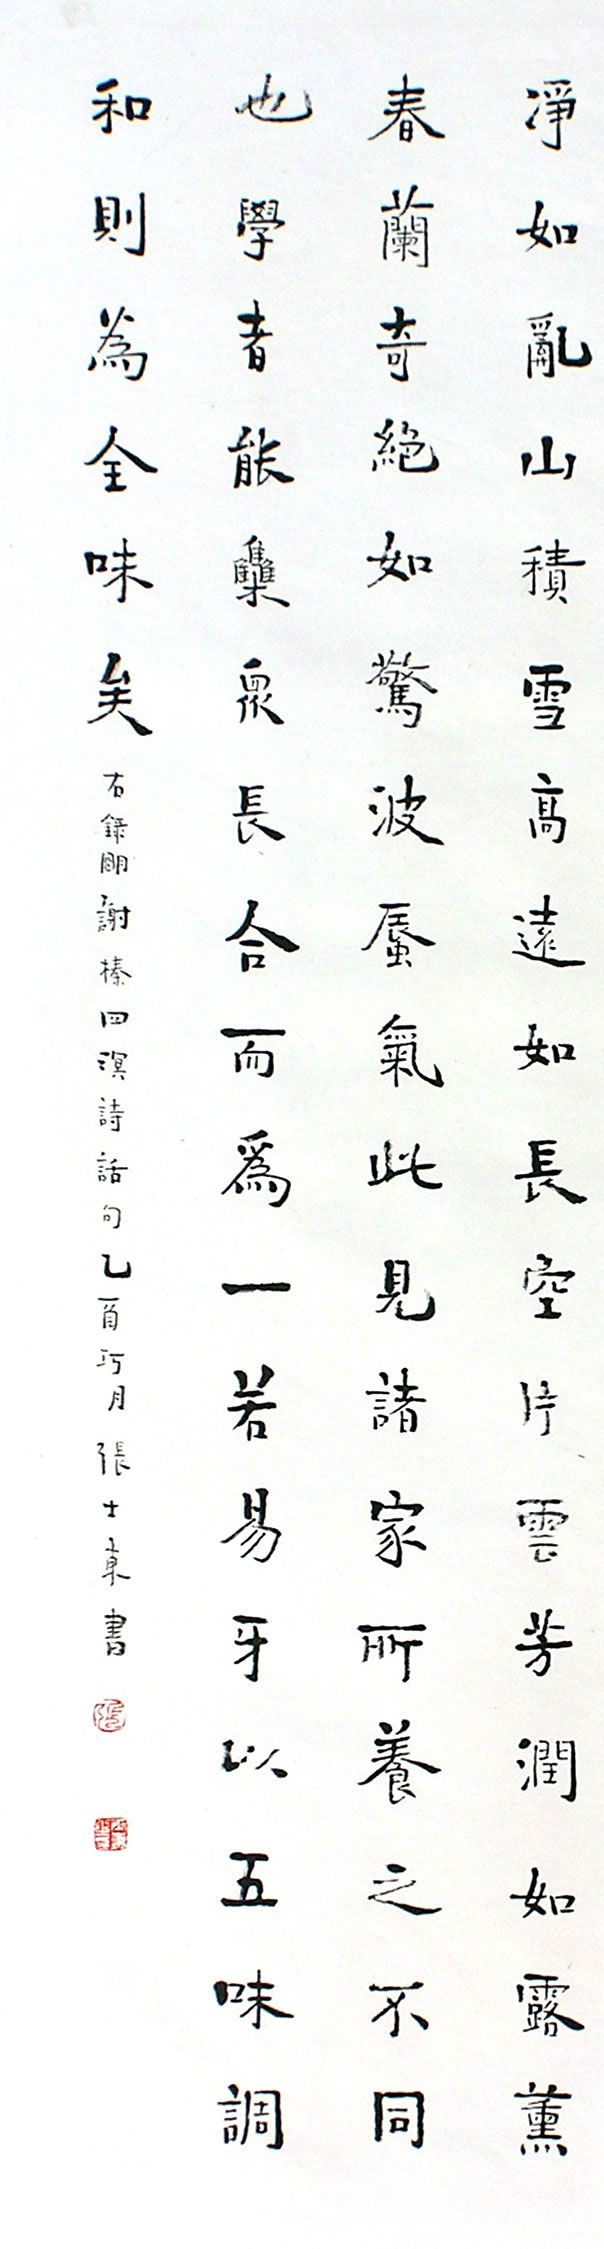 淨如亂山積雪高遠如長空片雲芳潤如露薰
春蘭奇絕如驚波蜃氣此見諸家所養之不同
也學者能集眾長合而為一若易牙以五味調
和則為全味矣
右錄明謝榛四溟詩話句乙酉巧月張士東書